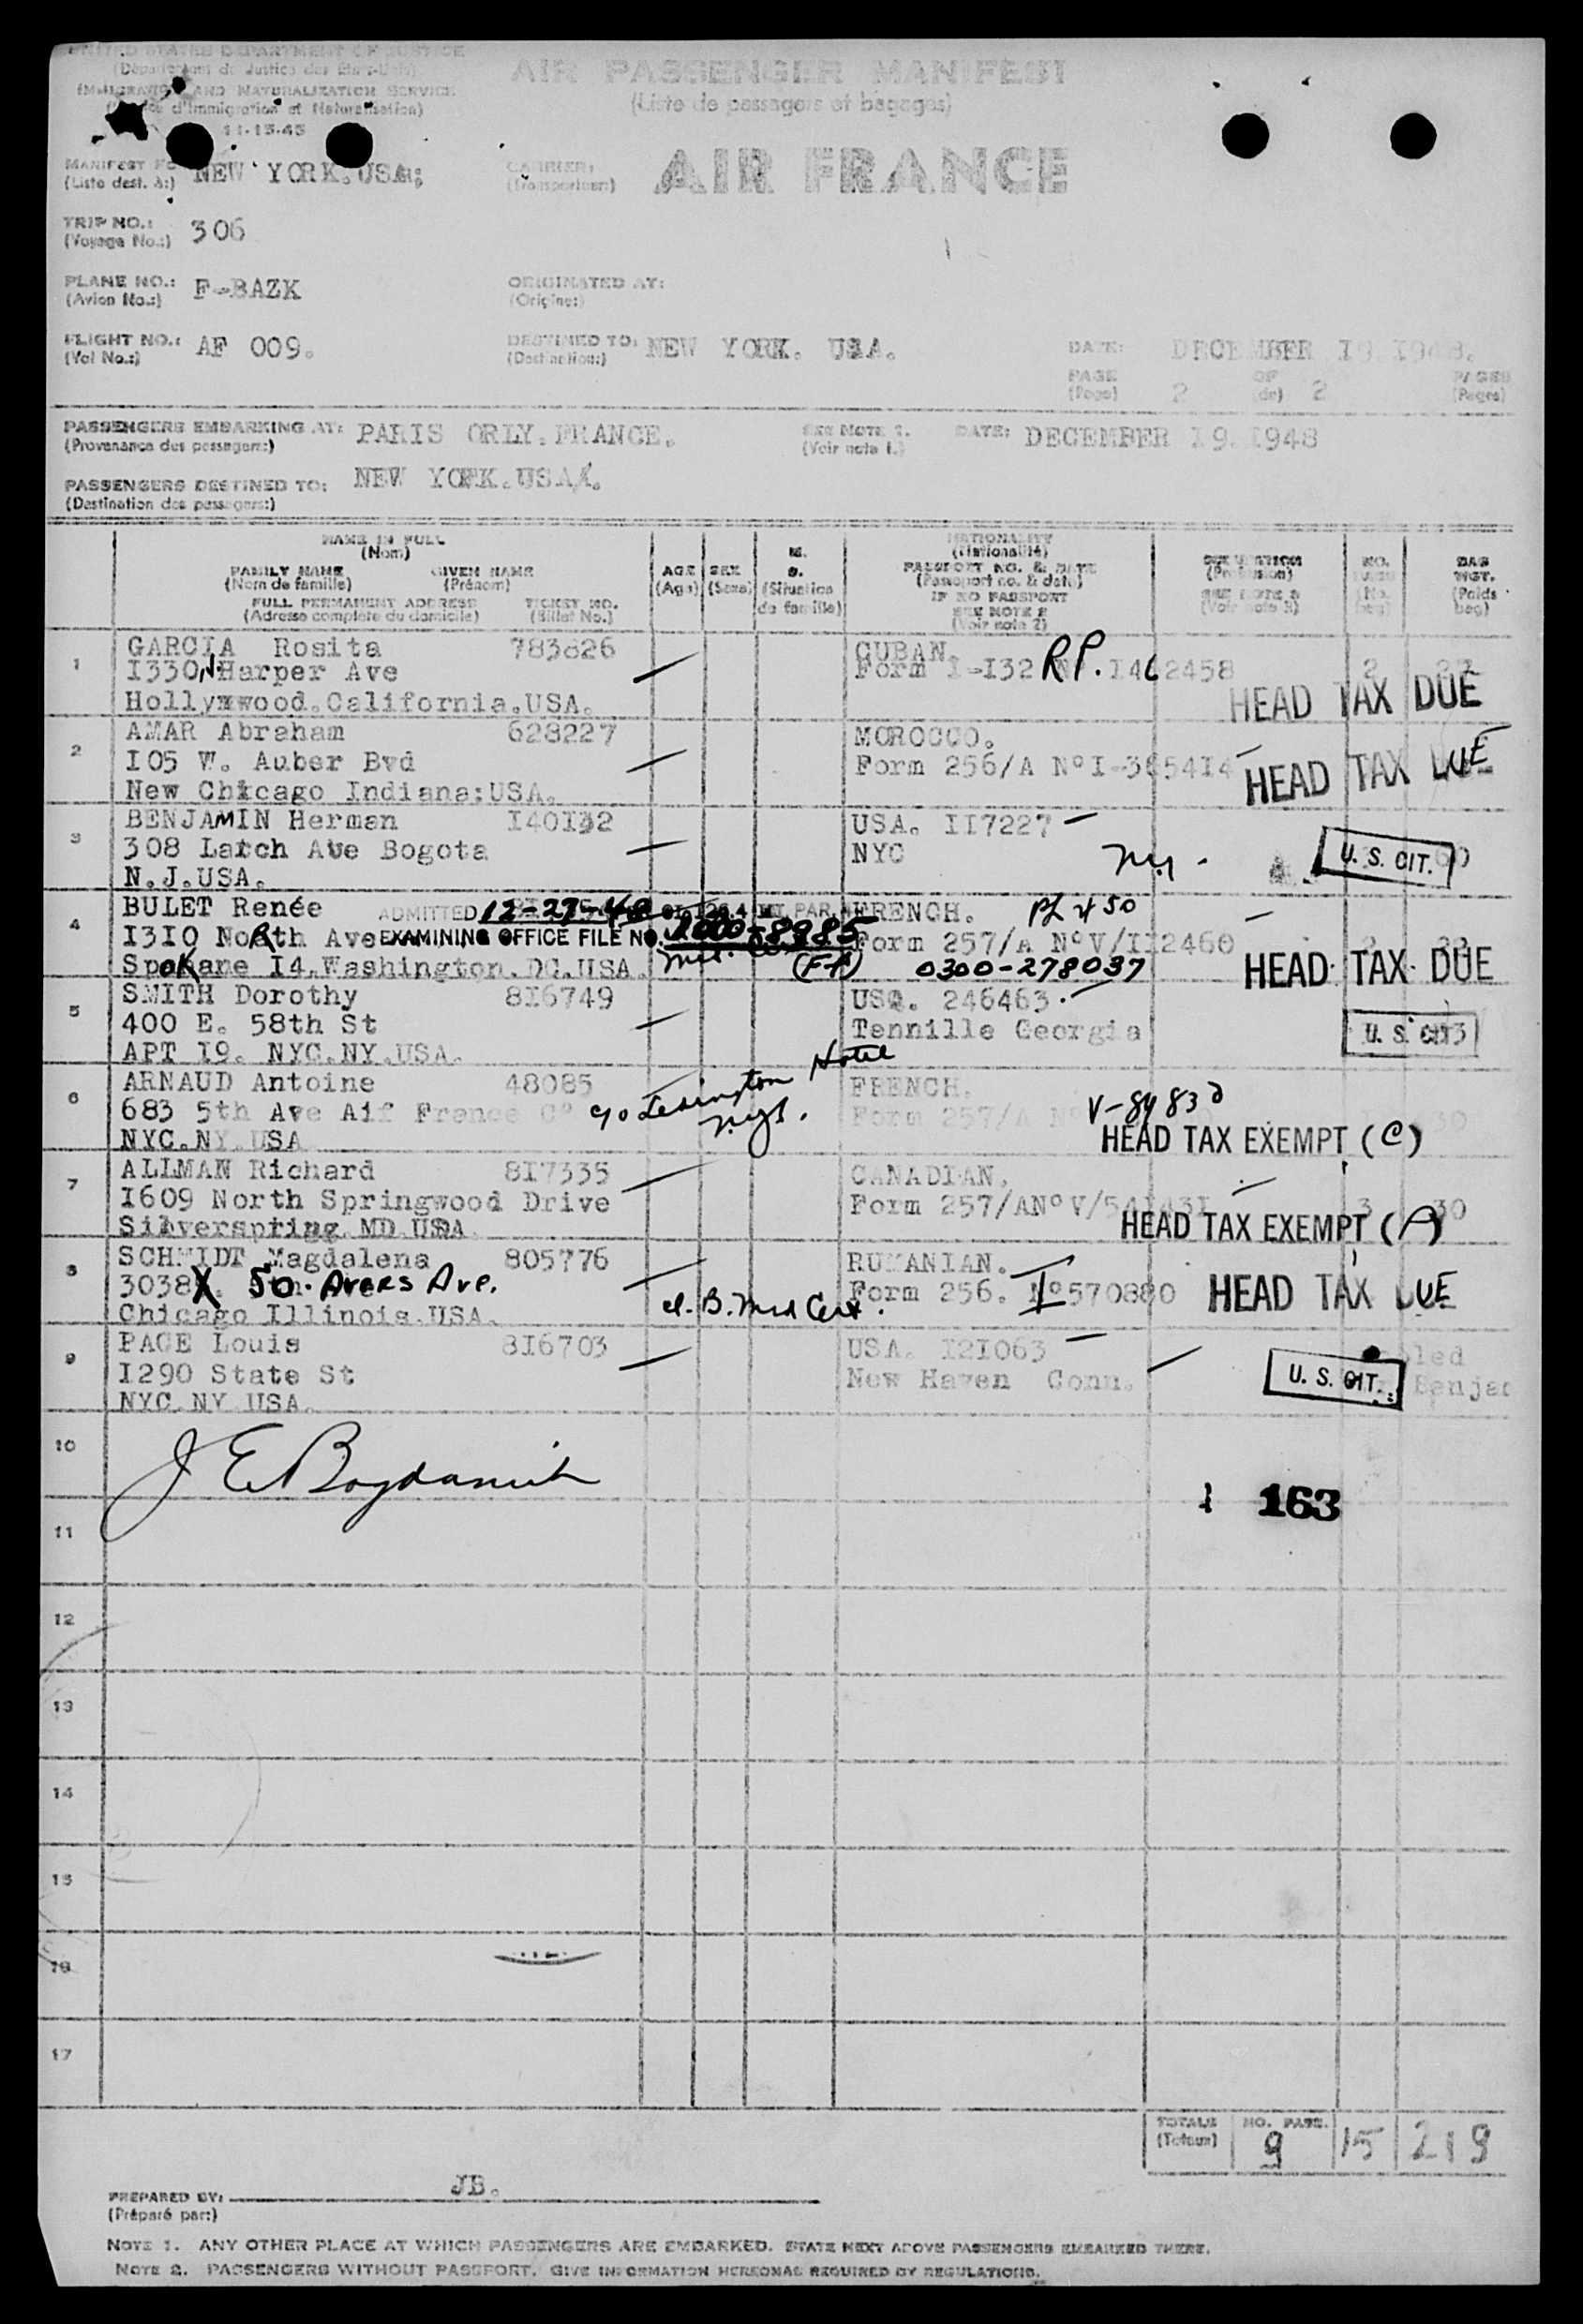 UNITED STATES DEPARTMENT OF JUSTICE
(Département de Justice des Etats-Unis)
IMMIGRATION AND NATURALIZATION SERVICE
d'Immigration et Naturalisation)
11-15-45
AIR PASSENGER MANIFEST
(Liste de passagers et bagages)
MANIFEST
(Liste dest. à:)
NEW YORK.USA;
CARRIER:
(Transporteur)
AIR FRANCE
TRIP NO.:
(Voyage No.:)
306
PLANE NO.:
(Avion No.:)
F-BAZK
ORIGINATED AT:
(Origine:)
FLIGHT NO.:
(Vol No.:)
AF 009.
DESTINED TO:
(Destination:)
NEW YORK. USA.
DATE:
DECEMBER 19 1948.
PAGE
(Page)
2
OF
(de)
2
PAGES
(Pages)
PASSENGERS EMBARKING AT:
(Provenance des passagers:)
PARIS ORLY.FRANCE.
SEE NOTE 1.
(Voir note 1.)
DATE:
DECEMBER 19.1948
PASSENGERS DESTINED TO:
(Destination des passagers:)
NEW YORK.USA.
NAME IN FULL
(Nom)
FAMILY NAME
(Nom de famille)
GIVEN NAME
(Prénom)
FULL PERMANENT ADDRESS
(Adresse complete du domicile)
TICKET NO.
(Billet No.)
AGE
(Age)
SEX
(Sexe)
M.
S.
(Situation
de famille)
NATIONALITY
(Nationalité)
PASSPORT NO. & DATE
(Passeport no. & date)
IF NO PASSPORT
SEE NOTE 2
(Voir note 2)
OCCUPATION
(Profession)
SEE NOTE 3
(Voir note 3)
NO.
(No.
bag)
BAG
WGT.
(Poids
bag)
1
GARCIA Rosita 783826
1330 N. Harper Ave
Hollywood.California.USA.
CUBAN.
Form I-132 RP. 1462458
2
HEAD TAX DUE
2
AMAR Abraham 628227
105 W. Auber Bvd
New Chicago Indiana:USA.
MOROCCO.
Form 256/A N°I-365414
HEAD TAX DUE
3
BENJAMIN Herman 140132
308 Larch Ave Bogota
N.J.USA.
USA. 117227
NYC
U. S. CIT.
4
BULET Renée
ADMITTED 12-27-48
1310 North Ave EXAMINING OFFICE FILE NO.
Spokane 14.Washington.DC.USA.
FRENCH.
Form 257/A N°V/112460
(FA) 0300-278037
HEAD TAX DUE
5
SMITH Dorothy 816749
400 E. 58th St
APT 19. NYC.NY.USA.
USA. 246463.
Tennille Georgia
U. S. CIT
6
ARNAUD Antoine 48085
683 5th Ave Air France C°
NYC.NY.USA
c/o Lexington Hotel
FRENCH.
Form 257/A N°
HEAD TAX EXEMPT (C)
7
ALLMAN Richard 817335
1609 North Springwood Drive
Silverspring.MD.USA.
CANADIAN.
Form 257/AN°V/541431
3 30
HEAD TAX EXEMPT (A)
8
SCHMIDT Magdalena 805776
3038 So. Avers Ave.
Chicago Illinois.USA.
Cl. B. Med Cert.
RUMANIAN.
Form 256. I N°570880
HEAD TAX DUE
9
PAGE Louis 816703
1290 State St
NYC NY USA.
USA. 121063
New Haven Conn.
U. S. CIT.
10
J E Bogdanich
163
11
12
13
14
15
16
17
TOTALS
(Totaux)
NO. PASS.
9
15
219
PREPARED BY:
(Préparé par:)
JB.
NOTE 1. ANY OTHER PLACE AT WHICH PASSENGERS ARE EMBARKED. STATE NEXT ABOVE PASSENGERS EMBARKED THERE.
NOTE 2. PASSENGERS WITHOUT PASSPORT. GIVE INFORMATION HEREON AS REQUIRED BY REGULATIONS.